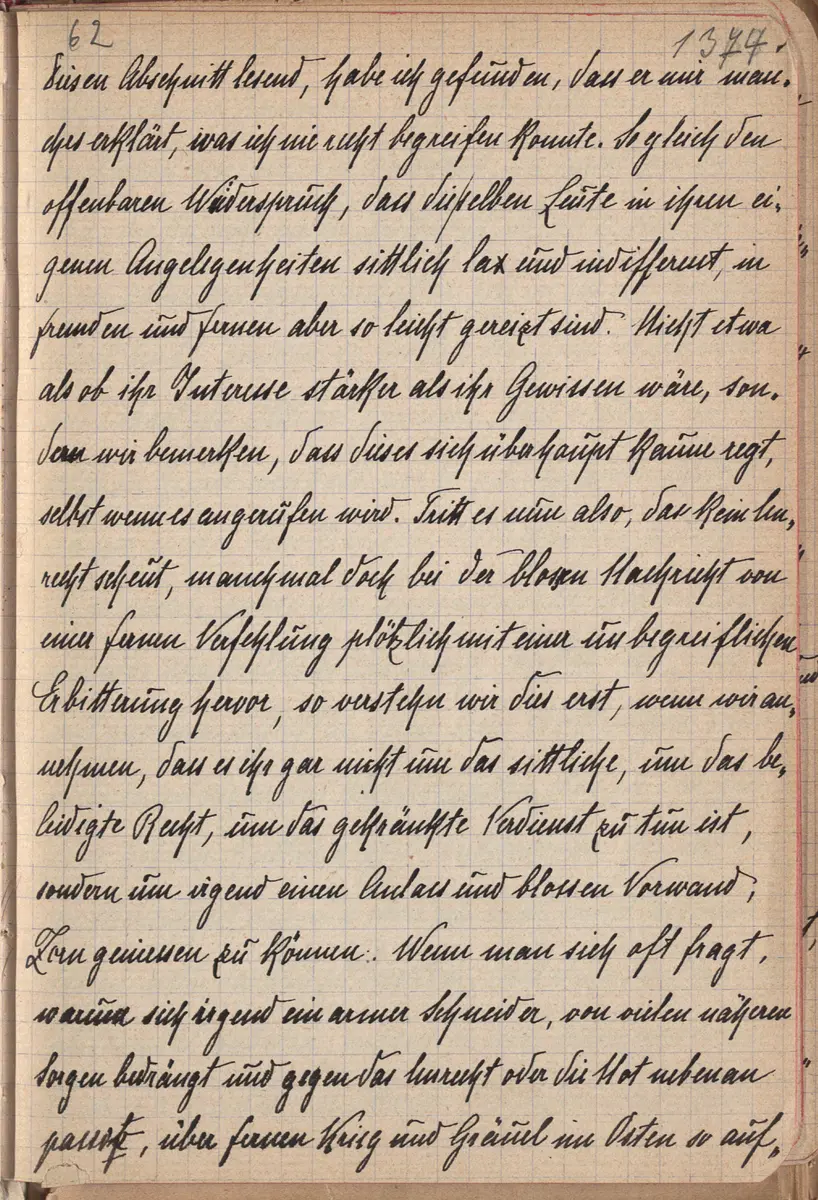 62
1377.
diesen Abschnitt lesend, habe ich gefunden, dass er mir man-
ches erklärt, was ich nie recht begreifen konnte. So gleich den
offenbaren Widerspruch, dass dieselben Leute in ihren ei-
genen Angelegenheiten sittlich lax und indifferent, in
fremden und fernen aber so leicht gereizt sind. Nicht etwa
als ob ihr Interesse stärker als ihr Gewissen wäre, son-
dern wir bemerken, dass dieses sich überhaupt kaum regt,
selbst wenn es angerufen wird. Tritt es nun also, das kein Un-
recht scheut, manchmal doch bei der blossen Nachricht von
einer fernen Verfehlung plötzlich mit einer unbegreiflichen
Erbitterung hervor, so verstehn wir dies erst, wenn wir an-
nehmen, dass es ihr gar nicht um das sittliche, um das be-
leidigte Recht, um das gekränkte Verdienst zu tun ist,
sondern um irgend einen Anlass und blossen Vorwand,
Zorn geniessen zu können. Wenn man sich oft fragt,
warum sich irgend ein armer Schneider, von vielen näheren
Sorgen bedrängt und gegen das Unrecht oder die Not nebenan
, über fernen Krieg und Gräuel im Osten so auf-